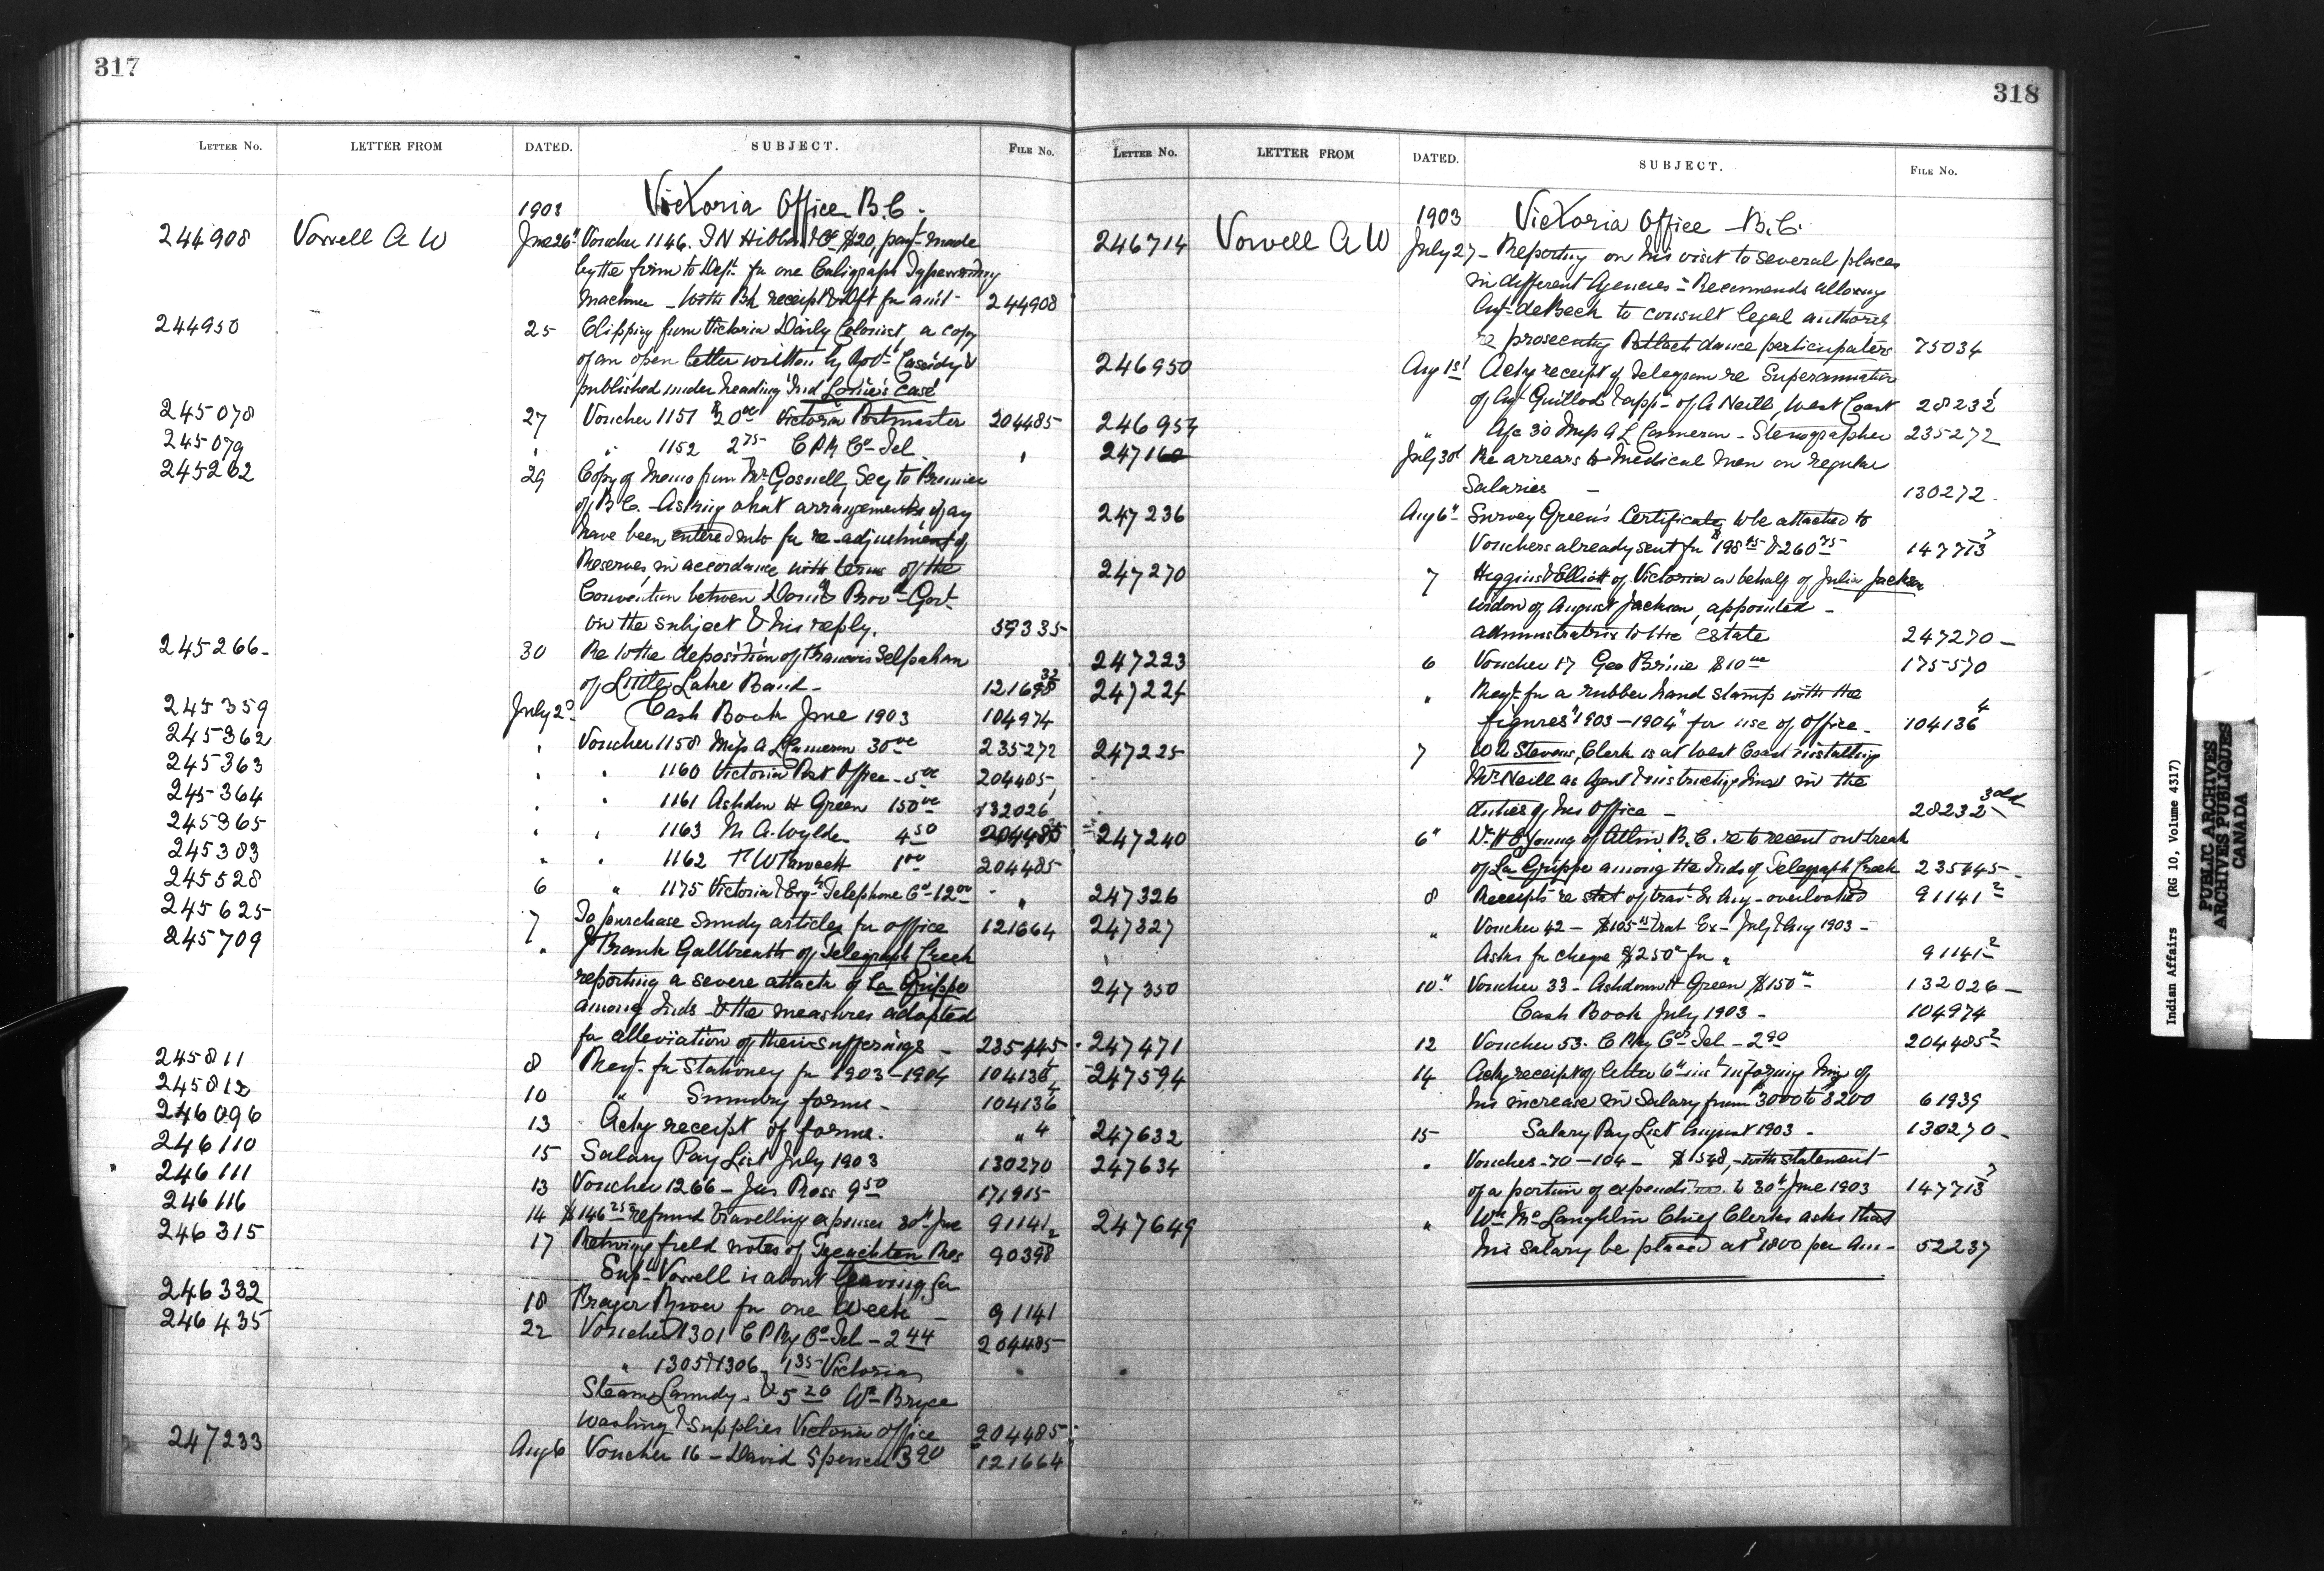 317
LETTER NO. LETTER FROM DATED. SUBJECT. FILE NO.
1903 Victoria Office B.C.
244908 Vowell A W June 26" Voucher 1146. T N Hibben & Co $20, payt made
by the firm to Dept. for one Caligraph Typewriting
machine - with Bk receipt & Dft for amt - 244908
244950 25 Clipping from Victoria Daily Colonist, a copy
of an open letter written by Robt Cassidy &
published under heading "Ind Louie's case"
245078 27 Voucher 1151 $20 00 Victoria Postmaster 204485
245079 " " 1152 2 75 C P R Co Tel "
245262 29 Copy of Memo from Mr Gosnell, Secy to Premier
of B C. - Asking what arrangements if any
have been entered into for re-adjustment of
Reserves in accordance with terms of the
Convention between Domn & Prov Govt
on the subject & his reply. 59335
245266 - 30 Re to the deposition of Francis Selpahan
of Little Lake Band - 121698 32
245359 July 2d Cash Book June 1903 104974
245362 " Voucher 1158 Miss A L Cameron 30 00 235272
245363 " " 1160 Victoria Post Office - 5 00 204485
245364 " " 1161 Ashdown H Green 150 00 132026
245365 " " 1163 M. A. Wylde 4 50 204485
245383 " " 1162 1 00 204485
245528 6 " 1175 Victoria & Esqt Telephone Co - 12 00 "
245625 7 To purchase sundy articles for office 121664
245709 " J Frank Gallbreath of Telegraph Creek
reporting a severe attack of La Grippe
among Inds & the measures adopted
for alleviation of their sufferings - 235445
245811 8 Reqt for Stationey for 1903-1904 104136
245812 10 " Sundry forms - 104136 4
246096 13 Ackg receipt of forms. " 4
246110 15 Salary Pay List July 1903 130270
246111 13 Voucher 1266 - Jas Ross 9 50 171915
246116 14 $146 25 refund travelling expenses 30th June 91141
246315 17 Retwing field notes of Tzeachten Res 90398 2
Supt Vowell is about leaving for
246332 18 Fraser River for one week - 91141
246435 22 Voucher 1301 C P Ry Co Tel - 2 44 204485
" 1305 & 1306 - 1 35 Victoria
Steam Laundy. & 5 20 Wm Bryce
washing & supplies Victoria office 204485
247233 Aug 6 Voucher 16 - David Spencer 3 20 121664
318
LETTER NO. LETTER FROM DATED. SUBJECT. FILE NO.
1903 Victoria Office - B.C.
246714 Vowell A W July 27 - Reporting on his visit to several places
in different Agencies - Recommends allowing
Agt DeBeck to consult legal authorty
re prosecuting Potlach dance participators 75034
246950 Aug 1st Ackg receipt of Telegram re Superannuation
of Agt Guillod & appt of A Neill, West Coast 28232
246957 " A/c 30 Miss A L Cameron - Stenographer 235272
247160 July 30th Re arrears to Medical Men on regular
Salaries - 130272
247236 Aug 6" Survey Green's Certificate to be attached to
Vouchers already sent for $198 & 260 75 147713 7
247270 7 Higgins & Elliott of Victoria on behalf of Julia Jackson
widow of August Jackson, appointed -
administratrix to the estate 247270 -
247223 6 Voucher 17 Geo Brine $10 00 175570
247224 " Reqt for a rubber hand stamp with the
figures "1903-1904" for use of Office - 104136 4
247225 7 W A Stevens, Clerk is at West Coast installing
Mr Neill as Agent & instructing him in the
duties of his Office - 28232 3
247240 6" Dr H E Young of Atlin, B.C. re to recent outbreak
of La Grippe among the Inds of Telegraph Creek 235445 -
247326 8 Receipts re stat of trav Ex Aug - overlooked 91141 2
247327 " Voucher 42 - $105 Trat Ex - July & Aug 1903 -
Asks for cheque $250 for " 91141 2
247350 10" Voucher 33 - Ashdown H Green $150 00 132026 -
Cash Book July 1903 - 104974
247471 12 Voucher 53. C P Ry Co Tel - 2 90 204485 2
247594 14 Ackg receipt of letter 6th inst informing him of
his increase in Salary from $3000 to 3200 61939
247632 15 Salary Pay List August 1903 - 130270 -
247634 " Voucher - 70 - 104 - $1548, - with statement
of a portion of expenditures to 30th June 1903 147713 7
247649 " Wm McLaughlin Chief Clerk asks that
his salary be placed at $1800 per An - 52237
Indian Affairs (RG 10, Volume 4317)
PUBLIC ARCHIVES
ARCHIVES PUBLIQUES
CANADA